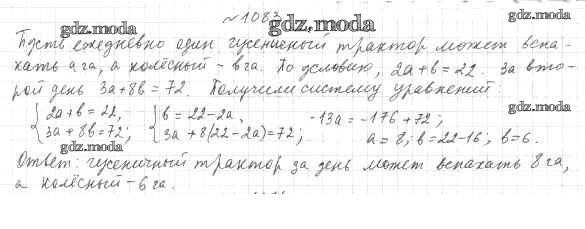 №1083
gdz.moda gdz.moda gdz.moda
Пусть ежедневно один гусеничный трактор может вспа-
хать a га, а колёсный - b га. По условию, 2a+b=22. За вто-
рой день 3a+8b=72. Получили систему уравнений:
gdz.moda gdz.moda
{2a+b=22, {b=22-2a, -13a=-176+72;
{3a+8b=72; {3a+8(22-2a)=72; a=8; b=22-16; b=6.
Ответ: гусеничный трактор за день может вспахать 8 га,
а колёсный - 6 га.
gdz.moda gdz.moda